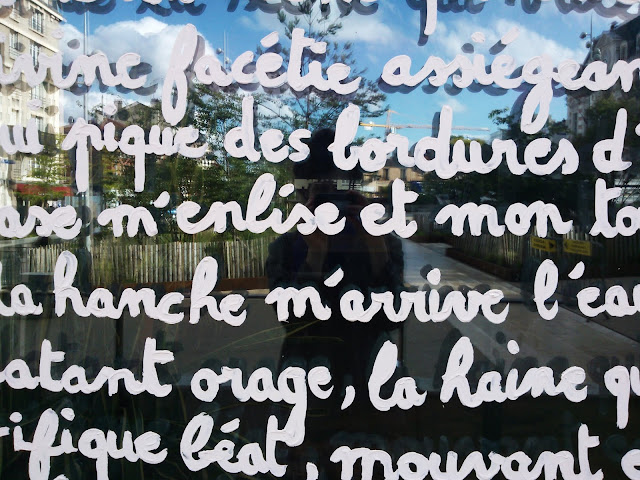 la Seine qui
divine facétie assiégean
ui pique des bordures d'
ase m'enlise et mon to
la hanche m'arrive l'eau
latant orage, la haine qu
rifique béat, mouvant e